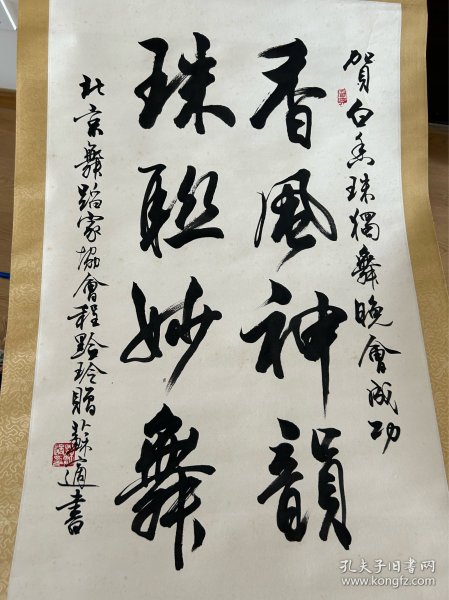 贺白香珠獨舞晚會成功
香風神韻
珠聯妙舞
北京舞蹈家協會程黔玲贈蘇適書
孔夫子旧书网
www.kongfz.com